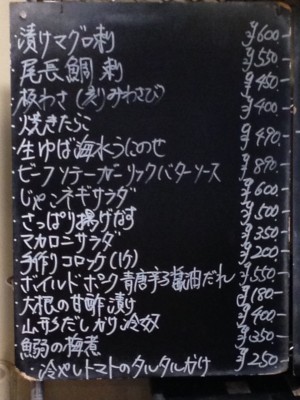 漬けマグロ刺 ¥600.-
尾長鯛 刺 ¥550.-
板わさ(刻みわさび) ¥450.-
焼きたらこ ¥400.-
生ゆば海水うにのせ ¥490.-
ビーフソテーガーリックバターソース ¥890.-
じゃこネギサラダ ¥600.-
さっぱり揚げなす ¥500.-
マカロニサラダ ¥350.-
手作りコロッケ(1ケ) ¥200.-
ボイルドポーク青唐辛子醤油だれ ¥550.-
大根の甘酢漬け ¥180.-
山形だしかけ冷奴 ¥400.-
鰯の梅煮 ¥350.-
・冷やしトマトのタルタルかけ ¥250.